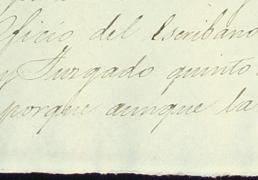 oficio del Escribano
y Jurgado quinto
porque aunque la